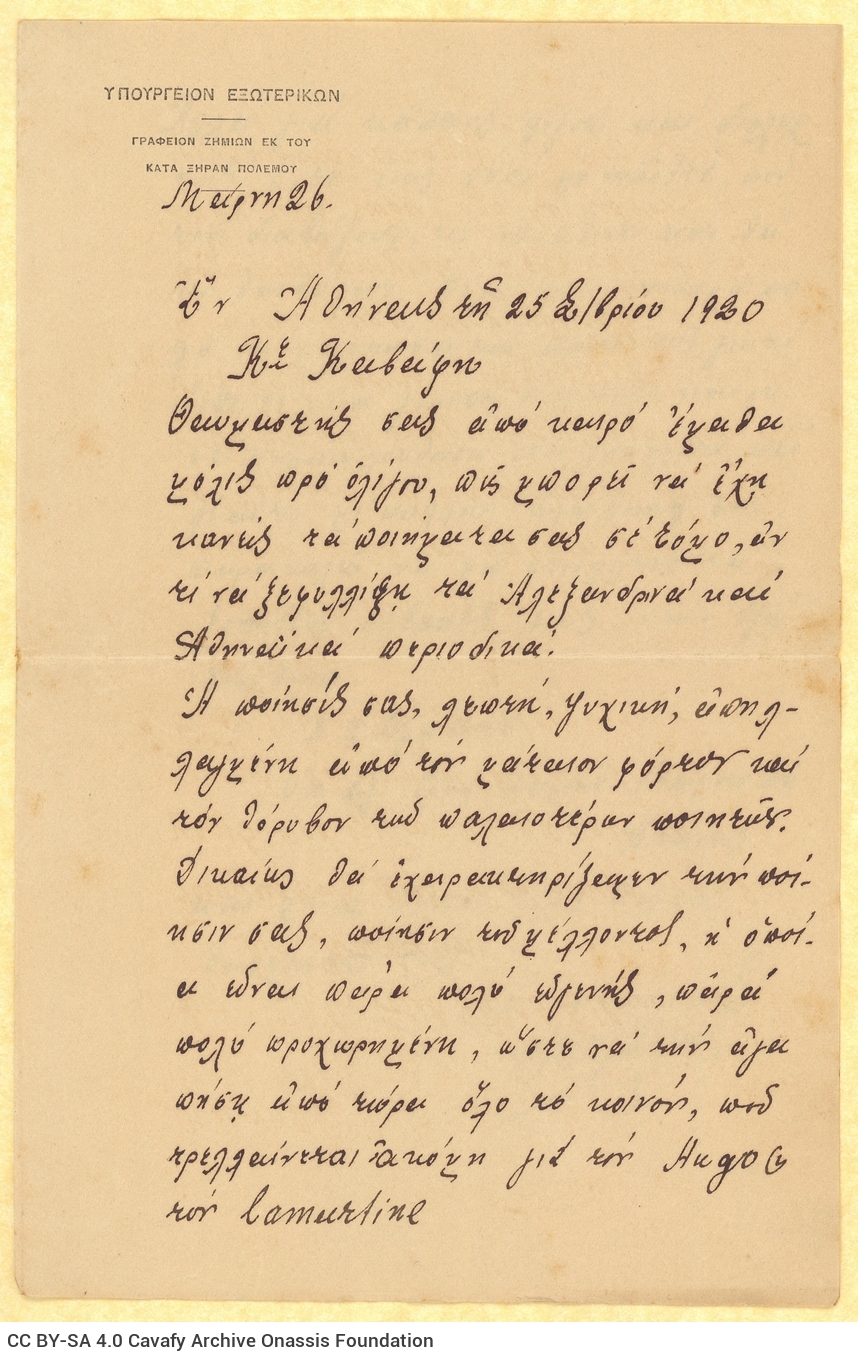 ΥΠΟΥΡΓΕΙΟΝ ΕΞΩΤΕΡΙΚΩΝ
ΓΡΑΦΕΙΟΝ ΖΗΜΙΩΝ ΕΚ ΤΟΥ
ΚΑΤΑ ΞΗΡΑΝ ΠΟΛΕΜΟΥ
26.
Ἐν Ἀθήναις τῇ 25 1920
Κε Καβάφη
Θαυμαστής σας ἀπό καιρό ἔμαθα
μόλις πρό ὀλίγου, πῶς μπορεῖ νά ἔχῃ
κανείς τά ποιήματα σας σέ τόμο, ἀν
τί νά ξεφυλλίζῃ τά Ἀλεξανδρινά καί
Ἀθηναϊκά περιοδικά.
Ἡ ποίησίς σας, λεπτή, ψυχική, ἀπηλ-
λαγμένη ἀπό τόν μάταιον φόρτον καί
τόν θόρυβον τῶν παλαιοτέρων ποιητῶν.
Δικαίως θά ἐχαρακτηρίζαμεν τήν ποί-
ησιν σας, ποίησιν τοῦ μέλλοντος, ἡ ὁποί-
α εἶναι πάρα πολύ εὐγενής, πάρα
πολύ προχωρημένη, ὥστε νά τήν ἀγα
πήσῃ ἀπό τώρα ὅλο τό κοινόν, ποῦ
τρελλαίνεται ἀκόμη γιά τόν Hugo
τόν Lamartine